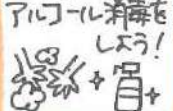 アルコール消毒を
しよう!